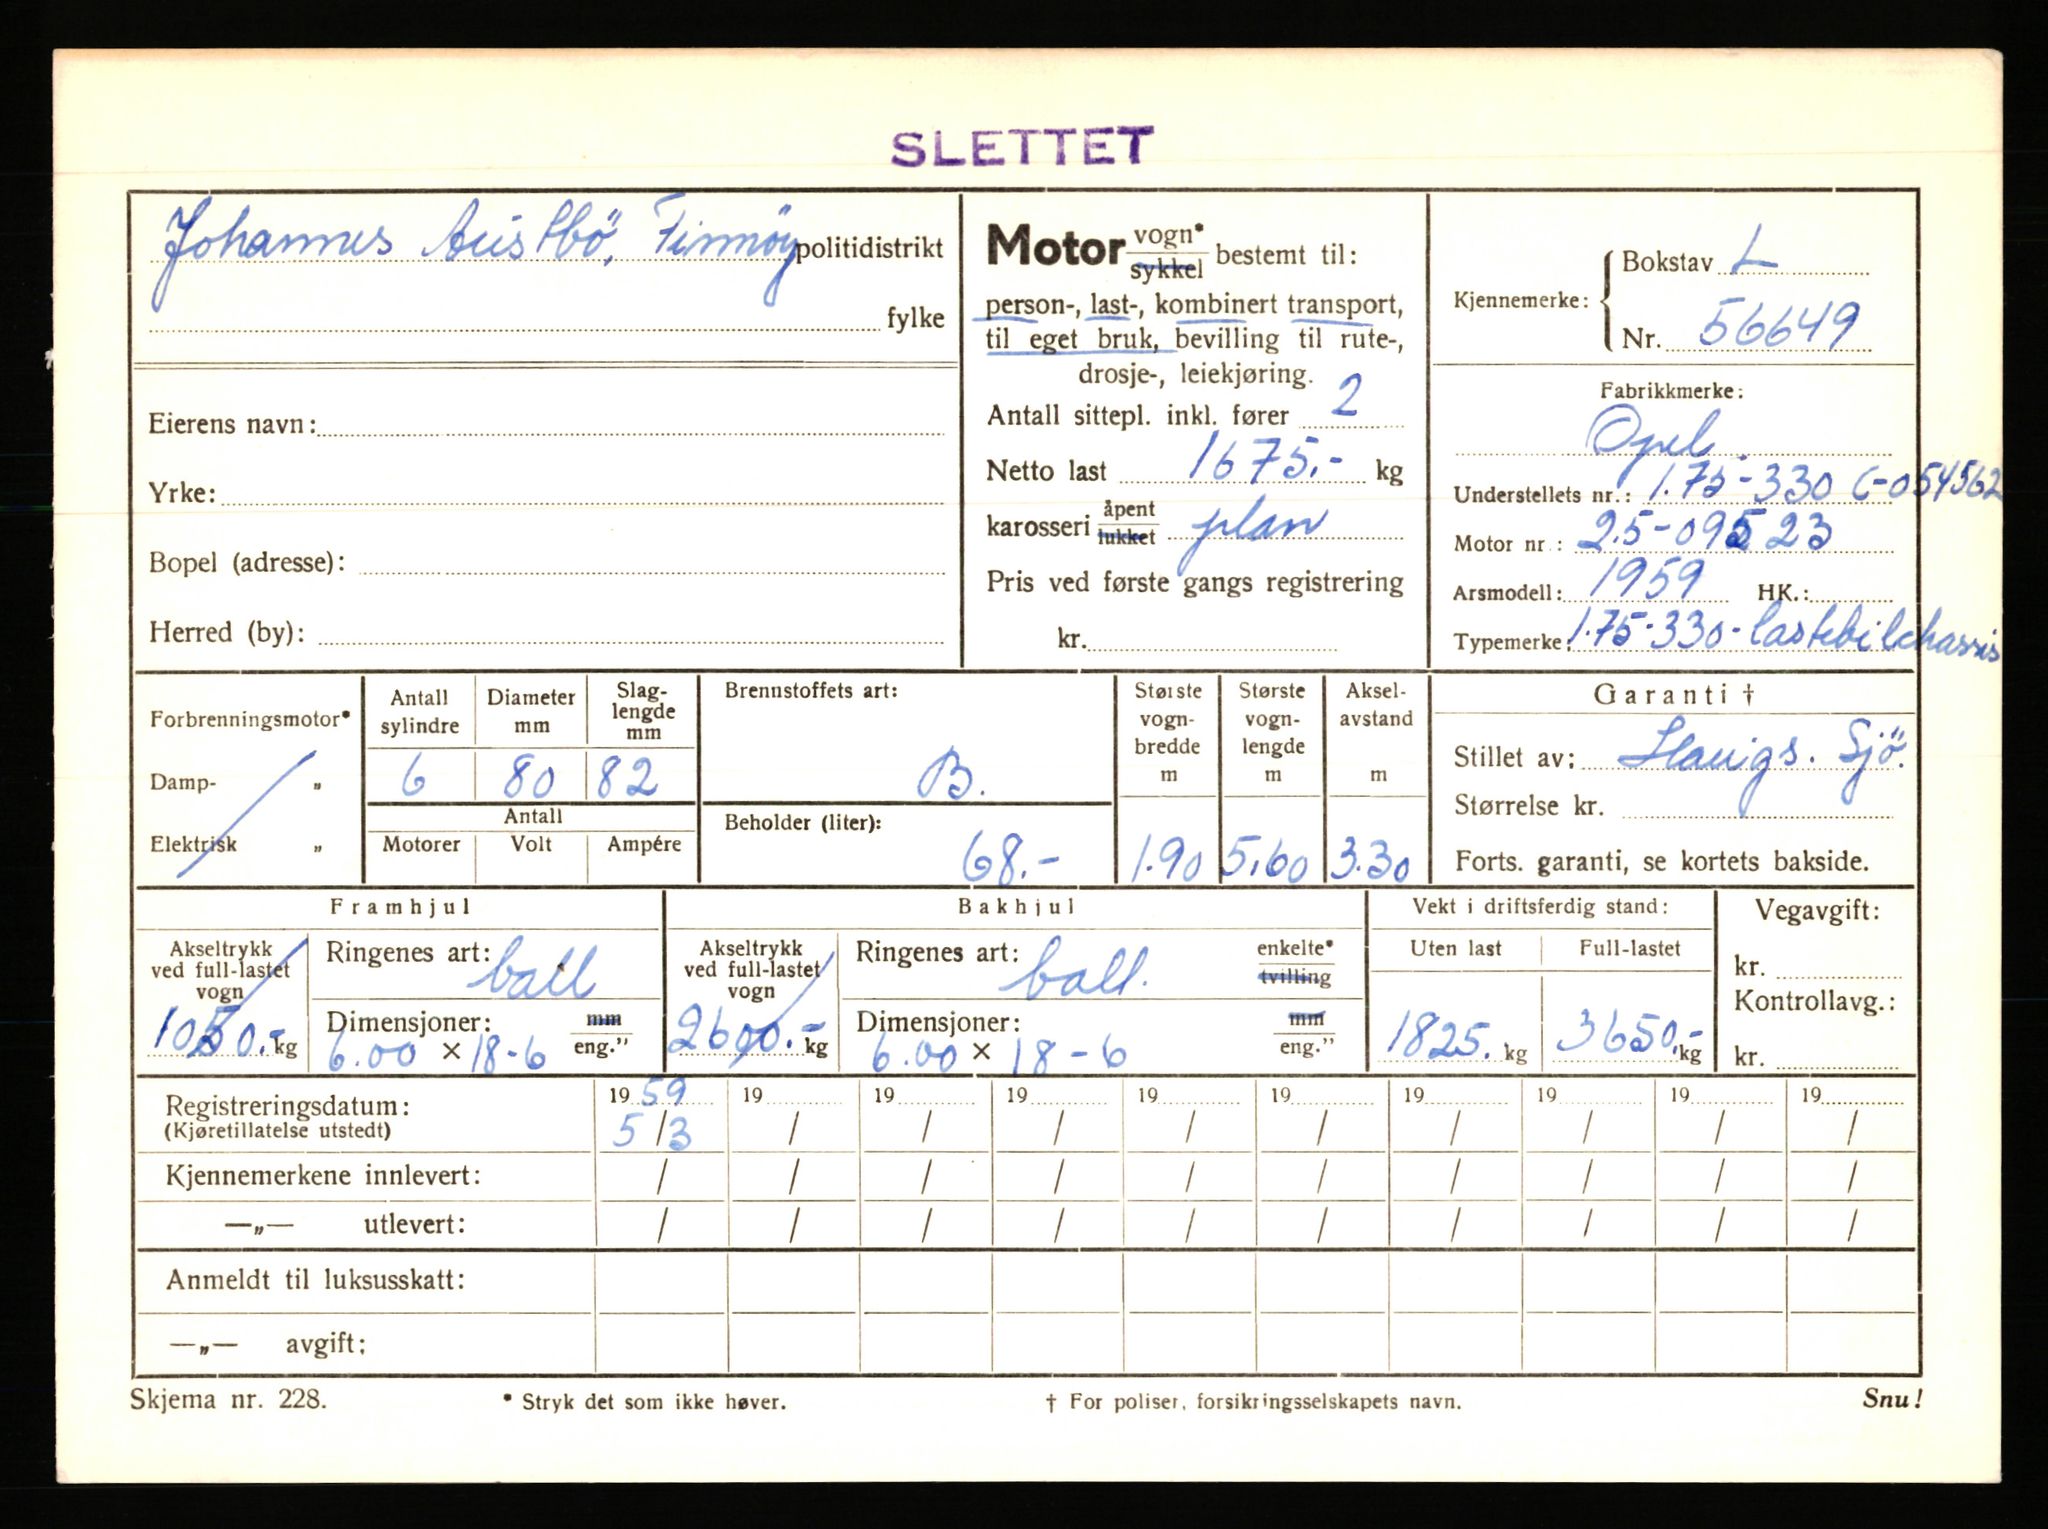 SLETTET
Johannes Austbö, Finnöy politidistrikt
fylke
Eierens navn:
Yrke:
Bopel (adresse):
Herred (by):
Motor vogn* sykkel bestemt til:
person-, last-, kombinert transport,
til eget bruk, bevilling til rute-,
drosje-, leiekjøring.
Antall sittepl. inkl. fører 2
Netto last 1675.- kg
karosseri åpent lukket plan
Pris ved første gangs registrering
kr.
Kjennemerke: Bokstav L
Nr. 56649
Fabrikkmerke:
Opel
Understellets nr.: 1.75-330 6-054562
Motor nr.: 2.5-095 23
Arsmodell: 1959 HK.:
Typemerke: 1.75-330-lastebilchassis
Forbrenningsmotor*
Damp- „
Elektrisk „
Antall sylindre Diameter mm Slag-lengde mm
6 80 82
Antall
Motorer Volt Ampére
Brennstoffets art:
B.
Beholder (liter):
68.-
Største vogn-bredde m
1.90
Største vogn-lengde m
5.60
Aksel-avstand m
3.30
Garanti †
Stillet av: Haugs. Sjö.
Størrelse kr.
Forts. garanti, se kortets bakside.
Framhjul
Akseltrykk ved full-lastet vogn
1050.- kg
Ringenes art: ball
Dimensjoner: mm eng."
6.00 × 18-6
Bakhjul
Akseltrykk ved full-lastet vogn
2600.- kg
Ringenes art: ball. enkelte* tvilling
Dimensjoner: mm eng."
6.00 × 18-6
Vekt i driftsferdig stand:
Uten last Full-lastet
1825. kg 3650.- kg
Vegavgift:
kr.
Kontrollavg.:
kr.
Registreringsdatum: 1959 19 19 19 19 19 19 19 19 19
(Kjøretillatelse utstedt) 5/3 / / / / / / / / /
Kjennemerkene innlevert: / / / / / / / / / /
—„— utlevert: / / / / / / / / / /
Anmeldt til luksusskatt:
—„— avgift:
Skjema nr. 228. * Stryk det som ikke høver. † For poliser, forsikringsselskapets navn. Snu!